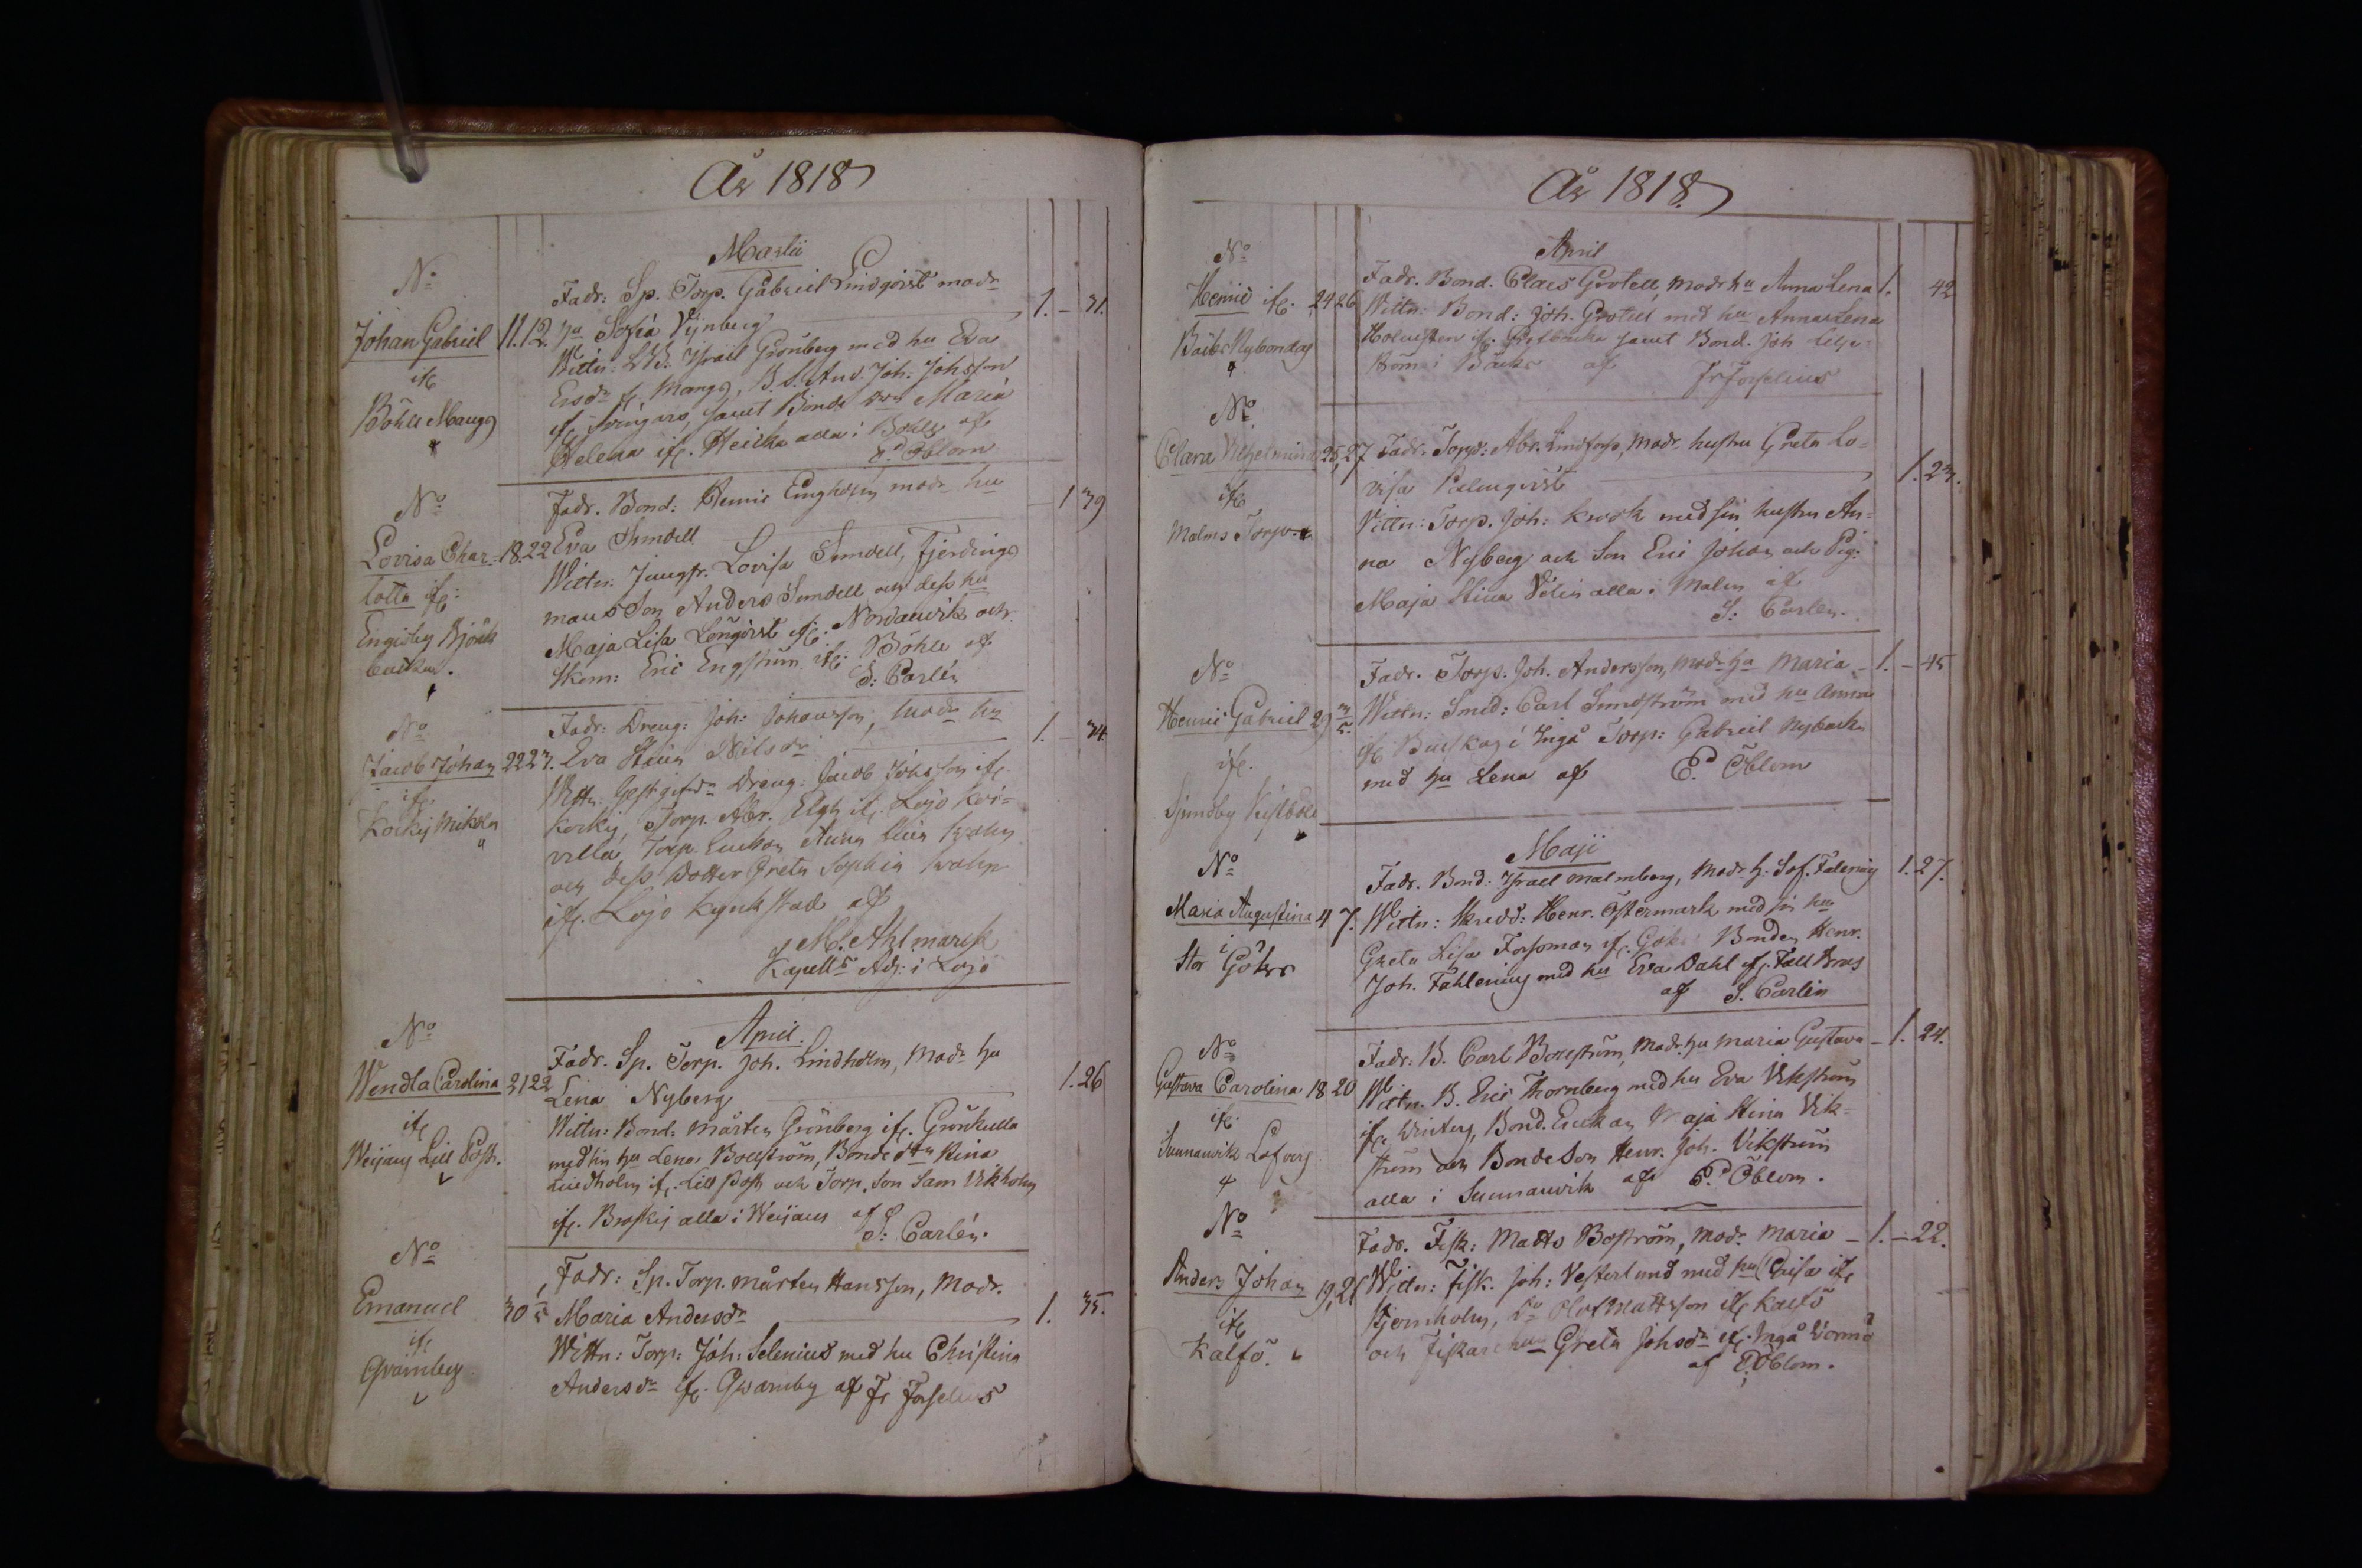 År 1818
Martii
No
Johan Gabriel 11. 12.
if
Böhle Mangs
Fadr: Sp. Torp. Gabriel Lindqvist modr
hu Sofia Vijnberg 1. – 31.
Wittn: Israel Grönberg med hu Eva
Ersdr if Mangs, B. S. And. Joh. Johsson
if Svingars, samt Bonde Maria
Helena if. Heikka alla i Böhle af
P. Öblom
No
Lovisa Char- 18. 22
lotta if:
Engisby Björk
backa.
Fadr. Bond: Henric Engholm modr hu 1 39
Eva Sundell
Wittn: Jungfr. Lovisa Sundell, Fjerdings
mans Son Anders Sundell och dess hu
Maja Lisa Löngvist if: Nordanvik och
Skom: Eric Engström if: Böhle af
S: Carlén
No
Jacob Johan 22 27.
if.
Korkij Mikola
Fadr: Dreng: Joh: Johansson, modr hu 1. – 34
Eva Stina Nilsdr
Wittn. Gestgifvr Dreng. Jacob Johsson if.
Korkij, Torp. Abr. Elgh if. Lojo Koi=
villa, Torp. Enkan Anna Stina
och dess Dotter Greta Sophia
if. Lojo Kyrkstad af
M. Ahlmark
Kapells Adj: i Lojo
April.
No
Wendla Carolina 21 22
if
Weijans Lill Post.
Fadr. Sp. Torp. Joh. Lindholm, Modr hu 1. 26
Lena Nyberg
Wittn: Bond: Mårten Grönberg if. Grönkulla
med sin hu Lena Boeström, Bonde dtr Stina
Lindholm if. Lill Post och Torp. Son Sam Vikholm
if. Broskij alla i Weijans af
S: Carlén.
No
Emanuel 30
if
Qvarnbÿ
Fadr: Sp. Torp. Mårten Hansson, Modr.
Maria Andersdr 1. 35.
Wittn: Torp: Joh: Selenius med hu Christina
Andersdr if. Qvarnby af Fr Forselius
År 1818
April
No
Henric if. 24 26
Bäcks Nybondas
Fadr. Bond. Claes Grotell, modr hu Anna Lena 1. 42
Wittn: Bond: Joh. Grotell med hu Anna Lena
Holmsten if. samt Bond. Joh Lilje=
ström i Bäcks af Fr Forselius
No
Clara Vilhelmina 25, 27
if
Malms Torp.
Fadr. Torp: Abr. Lindfors, modr hustru Greta Lo=
visa Palmqvist 1. 23.
Vittn: Torp. Joh: Krook med sin hustru An=
na Nyberg och Son Eric Johan och Pig:
Maja Stina Velin alla i Malm af
S: Carlén.
No
Henric Gabriel 29
if.
Sjundby
Fadr. Torp. Joh. Andersson, modr hu Maria – 1. – 45
Wittn: Smed: Carl Sundström med hu Anna
if i Ingå Torp: Gabriel Nybacka
med hu Lena af P. Öblom
Maji
No
Maria Augustina 4 7.
i
Stor Göhrs
Fadr. Bond: Israel Malmberg, Modr h: Sof. Falenius 1. 27.
Wittn: Skredd: Henr. Östermark med sin hu
Greta Lisa Forsman if. Göhrs Bonden Henr.
Joh. Fahlenius med hu Eva Dahl if. Tall Bros
af S. Carlén
No
Gustava Carolina 18 20
if.
Sunnanvik Lofvers
Fadr: B. Carl Boeström, Modr hu Maria Gustava – 1. 24.
Wittn. B. Eric Thornberg med hu Eva Vikström
if. Winters, Bond. Enkan Maja Stina Vik=
ström och Bonde Son Henr. Joh. Vikström
alla i Sunnanvik af P. Öblom.
No
Anders Johan 19, 21
if
Kalfö.
Fadr. Fisk: Matts Boström, modr Maria – 1. – 22.
Wittn: Fisk. Joh: Vesterlund med hu Caisa if
Stjernholm, Do Olof Mattsson if Kalfö
och Fiskare hu Greta Johsdr if. Ingå Vormö
af P: Öblom.